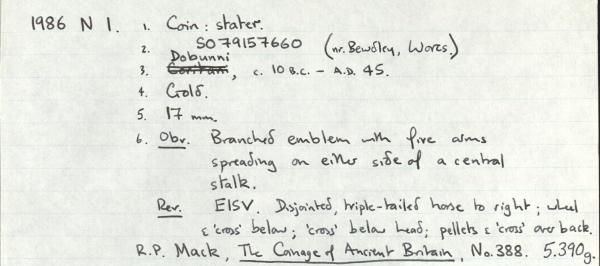 1986 N 1. 1. Coin: stater.
2. SO 79157660 (nr. Bewdley, Worcs.)
Dobunni
3. Coritani, c. 10 B.C. – A.D. 45.
4. Gold.
5. 17 mm.
6. Obv. Branched emblem with five arms
spreading on either side of a central
stalk.
Rev. EISV. Disjointed, triple-tailed horse to right; wheel
& 'cross' below; 'cross' below head; pellets & 'cross' over back.
R.P. Mack, The Coinage of Ancient Britain, No. 388. 5.390g.